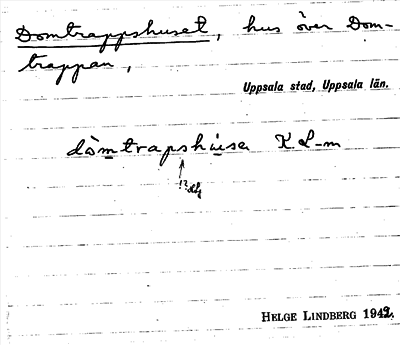 Domtrappshuset, hus över Dom-
trappan,
Uppsala stad, Uppsala län.
dòmtrapshùset K L-m
HELGE LINDBERG 1942.